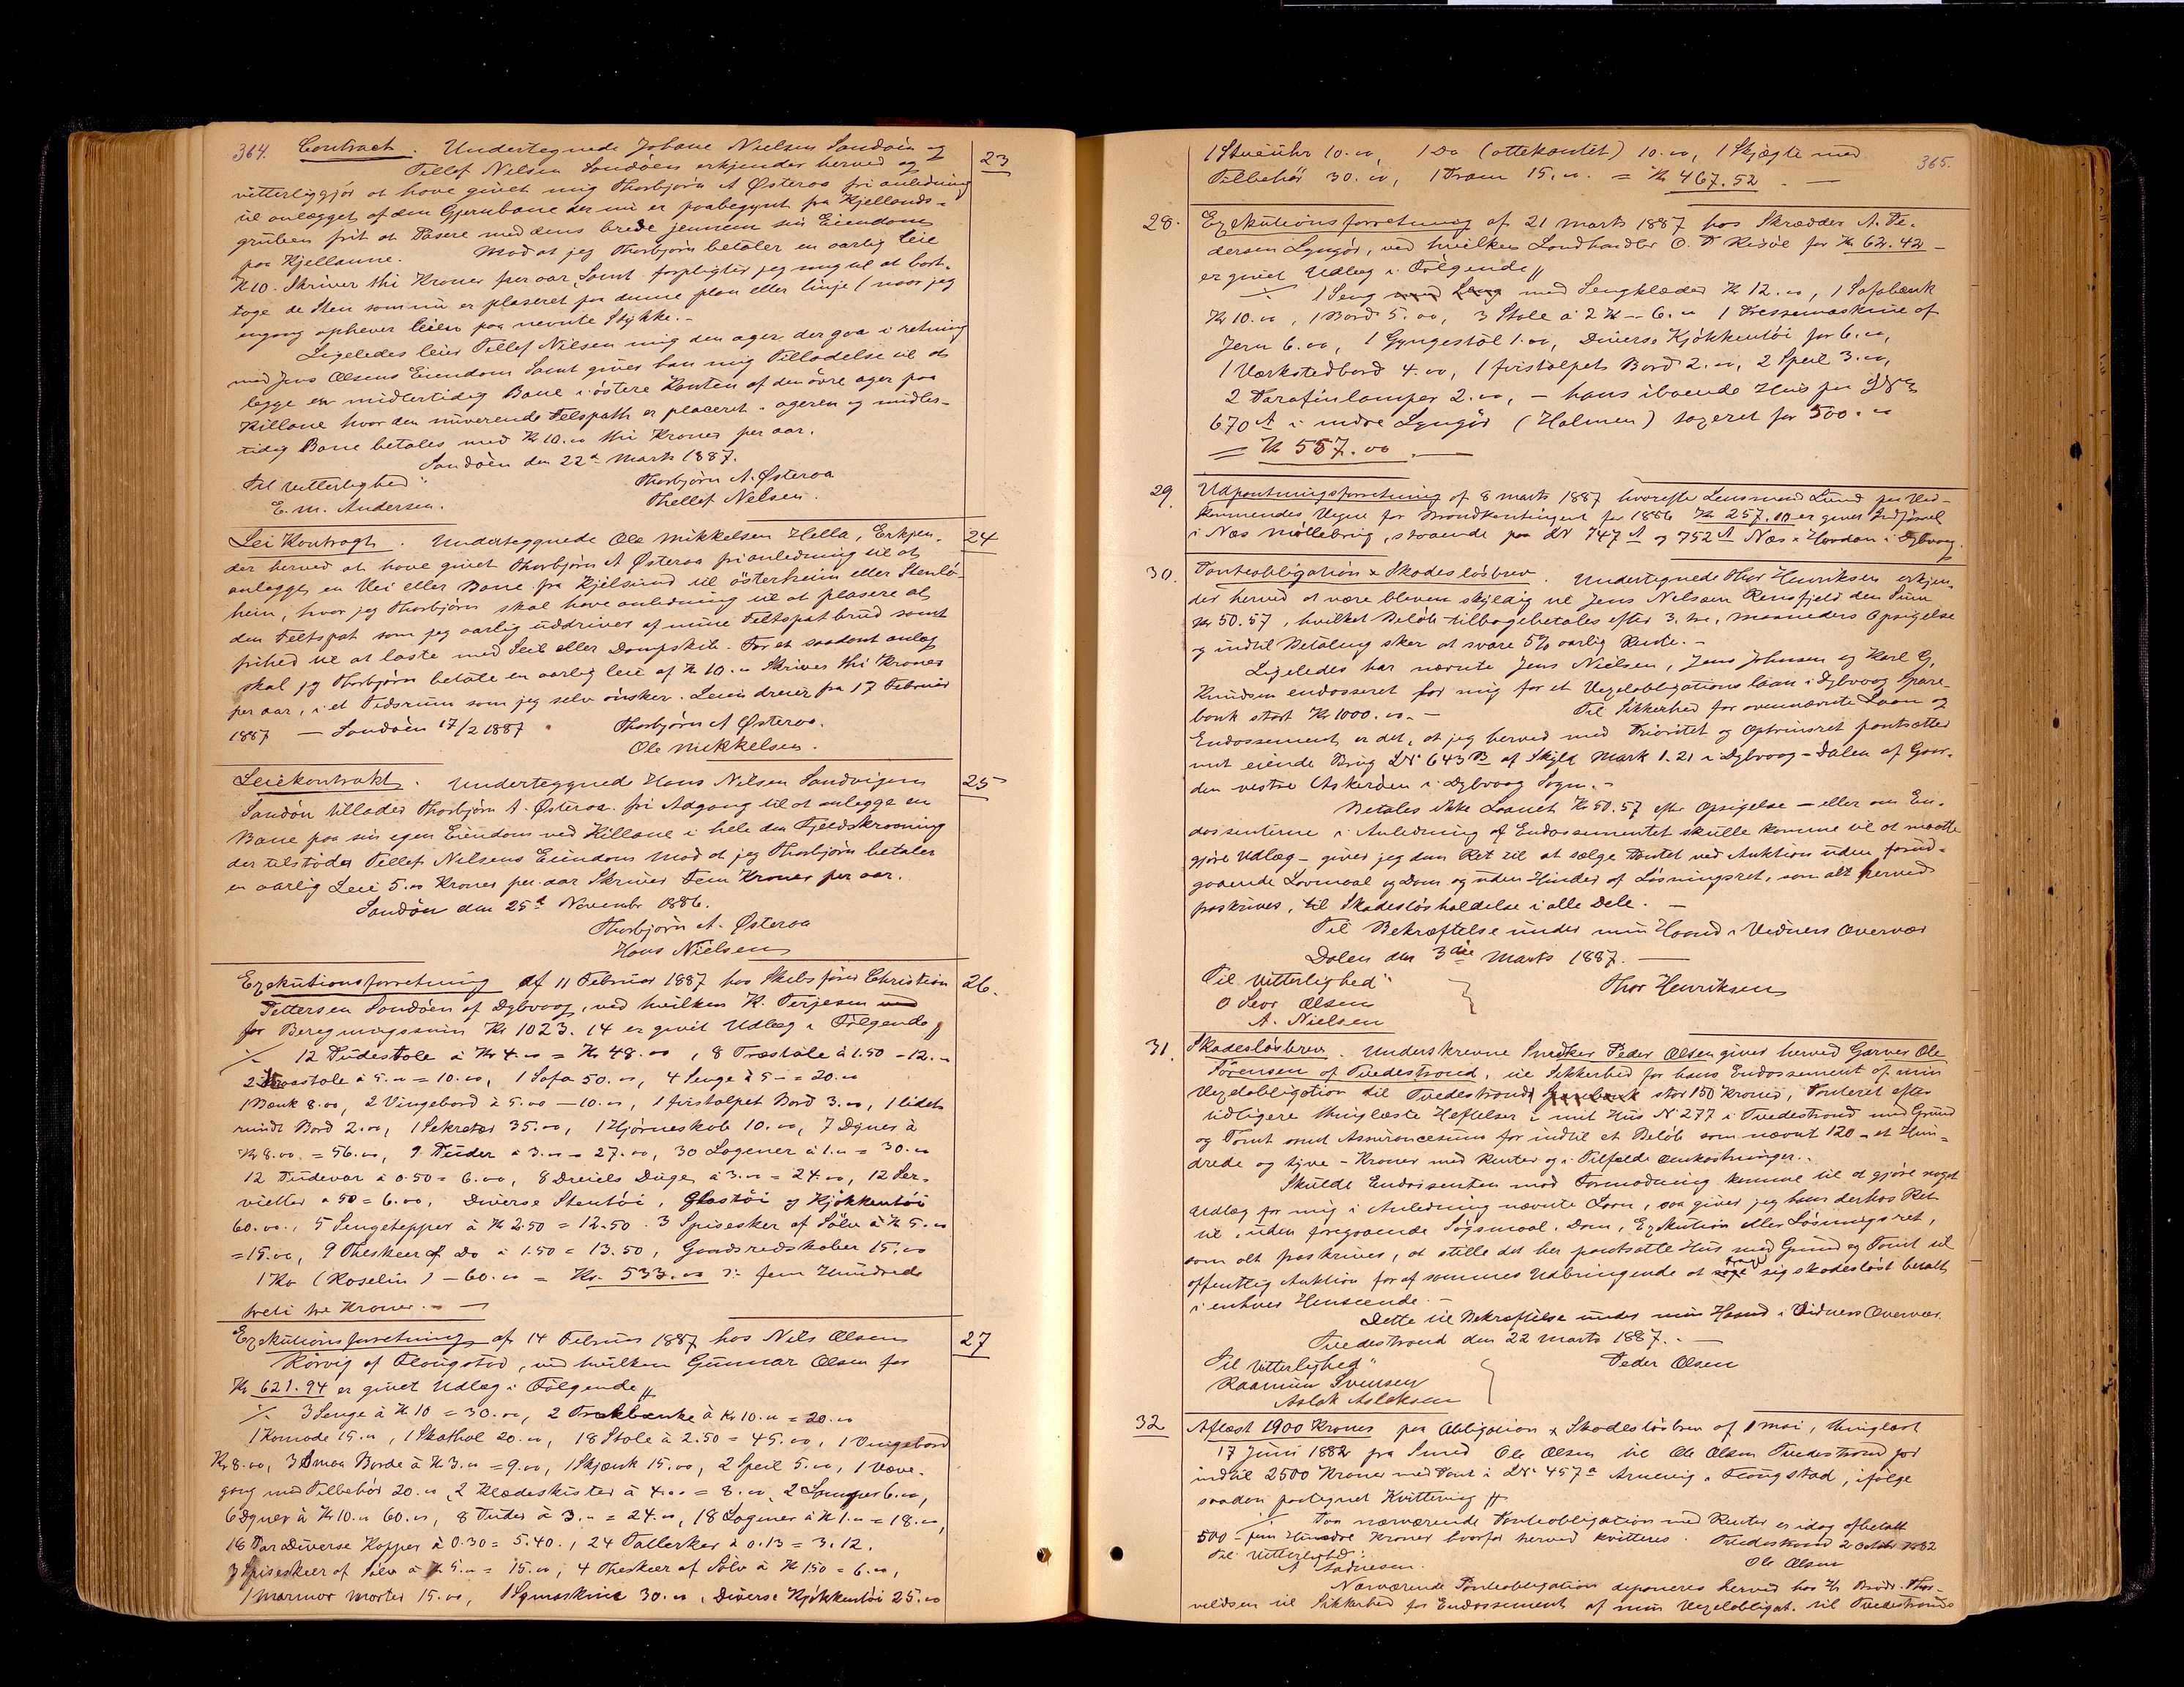 364. Contract. Undertegnede Johane Nielsen Sandøen og
Tellef Nilsen Sandøen erkjender herved og
vitterliggjør at have givet mig Thorbjørn A Østeraa fri anledning
til anlægget af den Gjernbane der nu er paabegynt fra Kjellands-
gruben frit at Pasere med dens brede jennem sin Eiendom
paa Kjellanne. Mod at jeg Thorbjørn betaler en aarlig leie
Kr 10. Skriver thi Kroner per aar, Samt forpligter jeg mig til at bort-
tage de Sten som nu er plaseret paa denne plan eller linje (naar jeg
engang ophever leien paa nevnte Stykke. -
Ligeledes leier Tellef Nilsen mig den ager der gaa i retning
med Jens Olsens Eiendom Samt giver han mig Tilladelse til at
legge en midlertidig Bane i östere Kanten af den övre ager paa
Killane hvor den nuverende Felspath er placeret. ageren og midler-
tidig Bane betales med Kr 10.00 thi Kroner per aar.
Sandöen den 22d Marts 1887.
Til Vitterlighed" Thorbjörn A. Østeraa
E. M. Andersen. Thellef Nelsen.
23
Lei Kontragt. Underteggnede Ole Mikkelsen Hella, Erkjen-
der herved at have givet Thorbjørn A Østeraa fri anledning til at
anlegge en Vei eller Bane fra Kjelsund til österheim eller Stenlö-
heim, hvor jeg Thorbjörn skal have anledning til at plasere al
den Feltspat som jeg aarlig uddriver af mine Feltspatbrud samt
frihed til at laste med Seil eller Dampskib. For et saadant anlæg
skal jeg Thorbjörn betale en aarlig leie af Kr 10.00 Skriver thi Kroner
per aar, i et Tidsrum som jeg selv önsker. Leien drever fra 17 Februar
1887 — Sandöen 17/2 1887 Thorbjörn A Østeraa.
Ole Mikkelsen.
24
Leiekontrakt. Underteggnede Hans Nilsen Sandvigen
Sandön tillader Thorbjörn A. Østeraa fri Adgang til at anlegge en
Bane paa sin egen Eiendom ved Killane i hele den Fjeldskraaning
der tilstöder Tellef Nilsens Eiendom Mod at jeg Thorbjörn betaler
en aarlig Leie 5.00 Kroner per aar Skriver Fem Kroner per aar.
Sandön den 25d Novembr 1886.
Thorbjörn A. Østeraa
Hans Nielsen
25
Exekutionsforretning af 11 Februar 1887 hos Skibsförer Christian
Pettersen Sandöen af Dybvaag, ved hvilken K. Terjesen
for Beregningssum Kr 1023.14 er givet Udlæg i Fölgende //
./. 12 Pudestole à Kr 4.00 = Kr 48.00, 8 Træstole à 1.50 - 12.00
à 5.00 = 10.00, 1 Sofa 50.00, 4 Senge à 5 - = 20.00
1 Bænk 8.00, 2 Vingebord à 5.00 — 10.00, 1 firstolpet Bord 3.00, 1 lidet
rundt Bord 2.00, 1 Sekretær 35.00, 1 Hjörneskab 10.00, 7 Dyner à
Kr 8.00. = 56.00, 9 Puder à 3.00 = 27.00, 30 Lagener à 1.00 = 30.00
12 Pudevar à 0.50 = 6.00, 8 Dreiels Duge à 3.00 = 24.00, 12 Ser-
vietter a 50 = 6.00, Diverse Stentöi, Glastöi og Kjökkentöi
60.00., 5 Sengetepper à Kr 2.50 = 12.50. 3 Spiseskeer af Sölv à Kr 5.00
= 15.00, 9 Theskeer af Do à 1.50 = 13.50, Gaardsredskaber 15.00
1 Ko (Roselin) - 60.00 = Kr. 533.00 ɔ: fem Hundrede
treti tre Kroner. —
26.
Exekutionsforretning af 14 Februar 1887 hos Nils Olsen
Rörvig af Flaugstad, ved hvilken Gunnar Olsen for
Kr 621.94 er givet Udlæg i Fölgende //
./. 3 Senge à Kr 10 = 30.00, 2 Trækbænke à Kr 10.00 = 20.00
1 Komode 15.00, 1 Skathol 20.00, 18 Stole à 2.50 = 45.00, 1 Vingebord
Kr 8.00, 3 Smaa Borde à Kr 3.00 = 9.00, 1 Skjænk 15.00, 2 Speil 5.00, 1 Væve-
gang med Tilbehör 20.00, 2 Klædeskister à 4.00 = 8.00, 2 Lamper 6.00,
6 Dyner à Kr 10.00 60.00, 8 Puder à 3.00 = 24.00, 18 Lagener à Kr 1.00 = 18.00,
Par Diverse Kopper à 0.30 = 5.40., 24 Tallerker à 0.13 = 3.12.
3 Spiseskeer af Sölv à Kr 5.00 = 15.00, 4 Theskeer af Sölv à Kr 150 = 6.00,
1 Marmor Morter 15.00, 1 Symaskine 30.00, Diverse Kjökkentöi 25.00
27
365.
1 Stueuhr 10.00, 1 Do (ottekantet) 10.00, 1 Skjægte med
Tilbehör 30.00, 1 Pram 15.00. = Kr 467.52. —
28. Exekutionsforretning af 21 Marts 1887 hos Skrædder A. Pe-
dersen Lyngör, ved hvilken Landhandler O. T Redal for Kr 62.42 -
er givet Udlæg i Fölgende //
./. 1 Seng med Sengklæder Kr 12.00, 1 Sofabænk
Kr 10.00, 1 Bord 5.00, 3 Stole à 2 Kr — 6.00 1 Pressemaskine af
Jern 6.00, 1 Gyngestol 1.00, Diverse Kjökkentöi for 6.00,
1 Værkstedbord 4.00, 1 firstolpet Bord 2.00, 2 Speil 3.00,
2 Parafinlamper 2.00, - hans iboende Hus paa LN
670 A i indre Lyngör (Holmen) taxeret for 500.00
= Kr 557.00. —
29. Udpantningsforretning af 8 Marts 1887 hvorefter Lensmand Lund paa Ved-
kommendes Vegne for Brandkontingent for 1886 Kr 257.00 er given Indförsel
i Næs möllebrug, staaende paa LN 747 A og 752 A Næs i Hovdan i Dybvaag.
30. Panteobligation & Skadeslösbrev. Undertegnede Thor Henriksen erkjen-
der herved at være bleven skyldig til Jens Nelsen Rensfjeld den Sum
Kr 50.57, hvilket Belöb tilbagebetales efter 3. tre, Maaneders Opsigelse
og indtil Betaling sker at svare 5% aarlig Rente. -
Ligeledes har nævnte Jens Nielsen, Jens Johnsen og Karl G,
Knudsen endosseret for mig for et Vexelobligationslaan i Dybvaag Spare-
bank stort Kr 1000.00. - Til Sikkerhed for ovennævnte Laan og
Endossement er det, at jeg herved med Prioritet og Optrinsret pantsætter
mit eiende Brug LN 643 B af Skyld Mark 1.21 i Dybvaag - Dalen af Gaar-
den vestre Askeröen i Dybvaag Sogn. -
Betales ikke Laanet Kr 50.57 efter Opsigelse — eller om En-
dossenterne i Anledning af Endossementet skulle komme til at maatte
gjöre Udlæg - giver jeg dem Ret til at sælge Pantet ved Auktion uden forud-
gaaende Lovmaal og Dom og uden Hinder af Lösningsret, som alt herved
fraskrives, til Skadeslösholdelse i alle Dele. -
Til Bekræftelse under min Haand i Vidners Overvær
Dalen den 3die Marts 1887. —
Til Vitterlighed" Thor Henriksen
Olsen
A. Nielsen
31. Skadeslösbrev. Underskrevne Snedker Peder Olsen giver herved Garver Ole
Sörensen af Tvedestrand, til Sikkerhed for hans Endossement af min
Vexelobligation til Tvedestrands Sparebank stor 150 Kroner, Panteret efter
tidligere thinglæste Heftelser i mit Hus No 277 i Tvedestrand med Grund
og Tomt samt Assurancesum for indtil et Belöb som nævnt 120 - et Hun-
drede og tyve - Kroner med Renter og i Tilfælde Omkostninger. -
Skulde Endossenten mod Formodning komme til at gjöre noget
Udlæg for mig i Anledning nævnte Laan, saa giver jeg ham derhos Ret
til, uden foregaaende Sögsmaal, Dom, Exekution eller Lösningsret,
som alt fraskrives, at stille det her pantsatte Hus med Grund og Tomt til
offentlig Auktion for af sammes Udbringende at sig skadeslöst betalt
i enhver Henseende. -
Dette til Bekræftelse under min Haand i Vidners Overvær.
Tvedestrand den 22 Marts 1887. —
Til Vitterlighed" Peder Olsen
Svensen
Aslak Aslaksen
32 Aflæst 1900 Kroner paa Obligation & Skadeslösbrev af 1 Mai, thinglæst
17 Juni 1882 fra Smed Ole Olsen til Ole Olsen Tvedestrand for
indtil 2500 Kroner med Pant i LN 457a Arnevig i Flaugstad, ifölge
saaden paategnet Kvittering //
./. Paa nærværende Panteobligation med Renter er idag afbetalt
500 - fem Hundre Kroner hvorfor herved kvitteres. Tvedestrand 2 Octobr 1882
Til Vitterlighed" Ole Olsen
Nærværende Panteobligation deponeres herved hos Hr Thor-
valdsen til Sikkerhed for Endossement af min Vexelobligat. til Tvedestrands